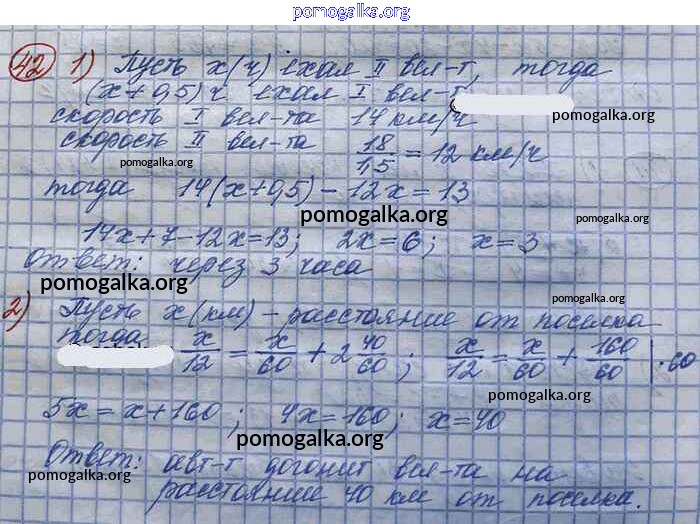 pomogalka.org
42 1) Пусть x(ч) ехал II вел-т, тогда
(x+0,5) ч ехал I вел-т
скорость I вел-та 14 км/ч
pomogalka.org
скорость II вел-та 18/1,5 = 12 км/ч
pomogalka.org
тогда 14(x+0,5) - 12x = 13
pomogalka.org
pomogalka.org
14x+7-12x=13; 2x=6; x=3
Ответ: через 3 часа
pomogalka.org
pomogalka.org
2) Пусть x(км) - расстояние от поселка
тогда x/12 = x/60 + 2 40/60; x/12 = x/60 + 160/60 | ·60
pomogalka.org
5x=x+160; 4x=160; x=40
pomogalka.org
Ответ: авт-т догонит вел-та на
pomogalka.org
расстояние 40 км от поселка.
pomogalka.org